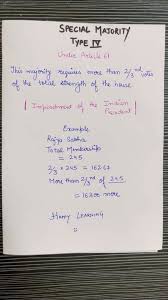 SPECIAL MAJORITY
TYPE IV
Under Article 61
This majority requires more than 2/3rd votes
of the total strength of the house.
Impeachment of the Indian
President
Example
Rajya Sabha
Total Membership
= 245
2/3 * 245 =
More than 2/3rd of 245
= or more
Happy Learning